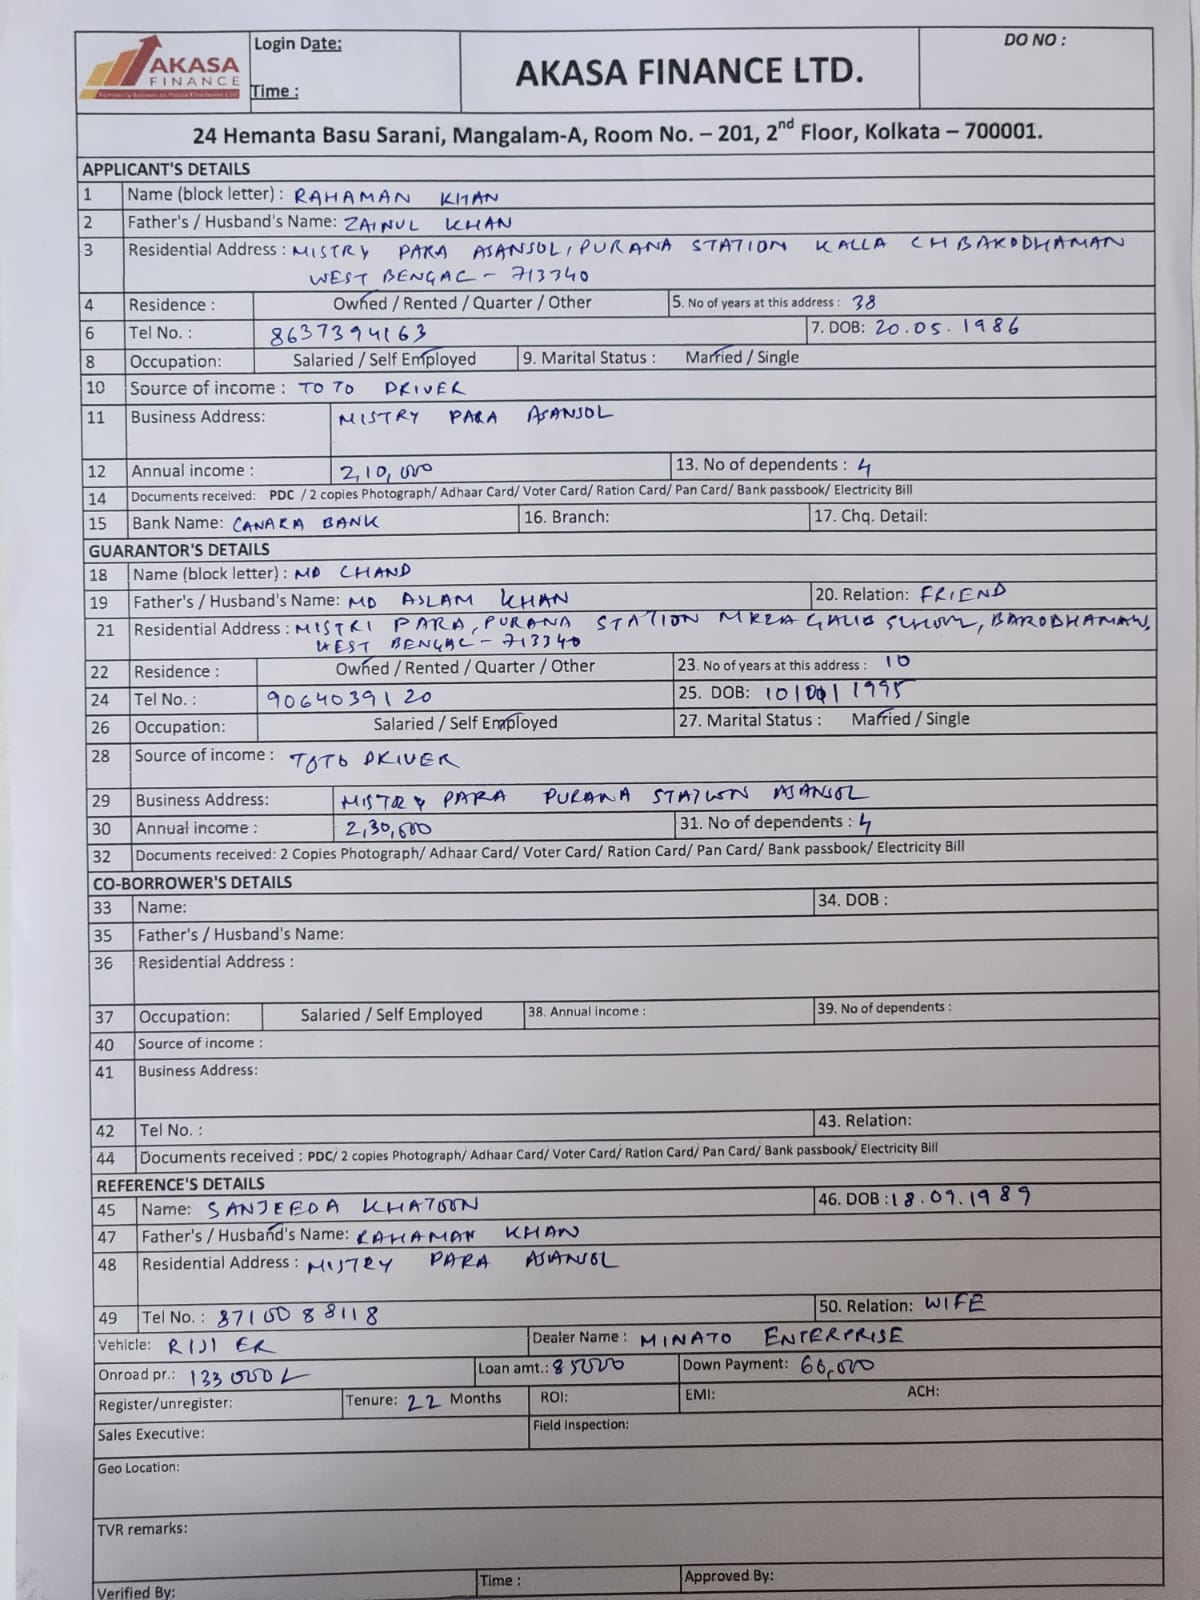 AKASA
FINANCE
Login Date:
Time :
AKASA FINANCE LTD.
DO NO :
24 Hemanta Basu Sarani, Mangalam-A, Room No. – 201, 2nd Floor, Kolkata – 700001.
APPLICANT'S DETAILS
1 Name (block letter) : RAHAMAN KHAN
2 Father's / Husband's Name: ZAINUL KHAN
3 Residential Address : MISTRY PARA ASANSOL, PURANA STATION KALLA CH BARODHAMAN
WEST BENGAL – 713340
4 Residence : Owned / Rented / Quarter / Other 5. No of years at this address : 38
6 Tel No. : 8637394163 7. DOB: 20.05.1986
8 Occupation: Salaried / Self Employed 9. Marital Status : Married / Single
10 Source of income : TOTO DRIVER
11 Business Address: MISTRY PARA ASANSOL
12 Annual income : 2,10,000 13. No of dependents : 4
14 Documents received: PDC / 2 copies Photograph/ Adhaar Card/ Voter Card/ Ration Card/ Pan Card/ Bank passbook/ Electricity Bill
15 Bank Name: CANARA BANK 16. Branch: 17. Chq. Detail:
GUARANTOR'S DETAILS
18 Name (block letter) : MD CHAND
19 Father's / Husband's Name: MD ASLAM KHAN 20. Relation: FRIEND
21 Residential Address : MISTRI PARA, PURANA STATION GALIB SCHOOL, BARODHAMAN,
WEST BENGAL – 713340
22 Residence : Owned / Rented / Quarter / Other 23. No of years at this address : 10
24 Tel No. : 9064039120 25. DOB: 10/01/1995
26 Occupation: Salaried / Self Employed 27. Marital Status : Married / Single
28 Source of income : TOTO DRIVER
29 Business Address: MISTRY PARA PURANA STATION ASANSOL
30 Annual income : 2,30,000 31. No of dependents : 4
32 Documents received: 2 Copies Photograph/ Adhaar Card/ Voter Card/ Ration Card/ Pan Card/ Bank passbook/ Electricity Bill
CO-BORROWER'S DETAILS
33 Name: 34. DOB :
35 Father's / Husband's Name:
36 Residential Address :
37 Occupation: Salaried / Self Employed 38. Annual income : 39. No of dependents :
40 Source of income :
41 Business Address:
42 Tel No. : 43. Relation:
44 Documents received : PDC/ 2 copies Photograph/ Adhaar Card/ Voter Card/ Ration Card/ Pan Card/ Bank passbook/ Electricity Bill
REFERENCE'S DETAILS
45 Name: SANJEEDA KHATOON 46. DOB : 18.09.1989
47 Father's / Husband's Name: RAHAMAN KHAN
48 Residential Address : MISTRY PARA ASANSOL
49 Tel No. : 8710088118 50. Relation: WIFE
Vehicle: RIJI ER Dealer Name : MINATO ENTERPRISE
Onroad pr.: 133000 Loan amt.: 85000 Down Payment: 66,000
Register/unregister: Tenure: 22 Months ROI: EMI: ACH:
Sales Executive: Field Inspection:
Geo Location:
TVR remarks:
Verified By: Time : Approved By: